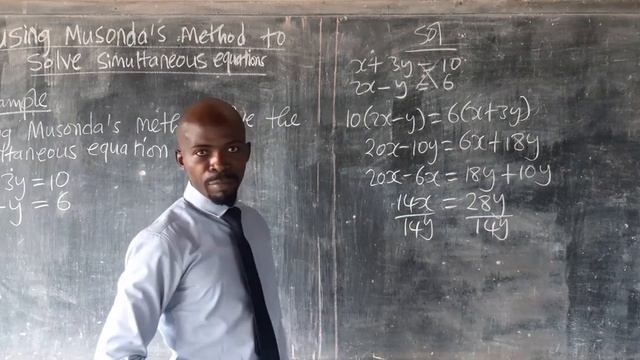 using Musonda's Method to
Solve simultaneous equations
ample
Musonda's meth ve the
taneous equation
3y = 10
-y = 6
Sol
x + 3y = 10
2x - y = 6
10(2x-y) = 6(x+3y)
20x-10y = 6x+18y
20x-6x = 18y+10y
14x = 28y
14y 14y